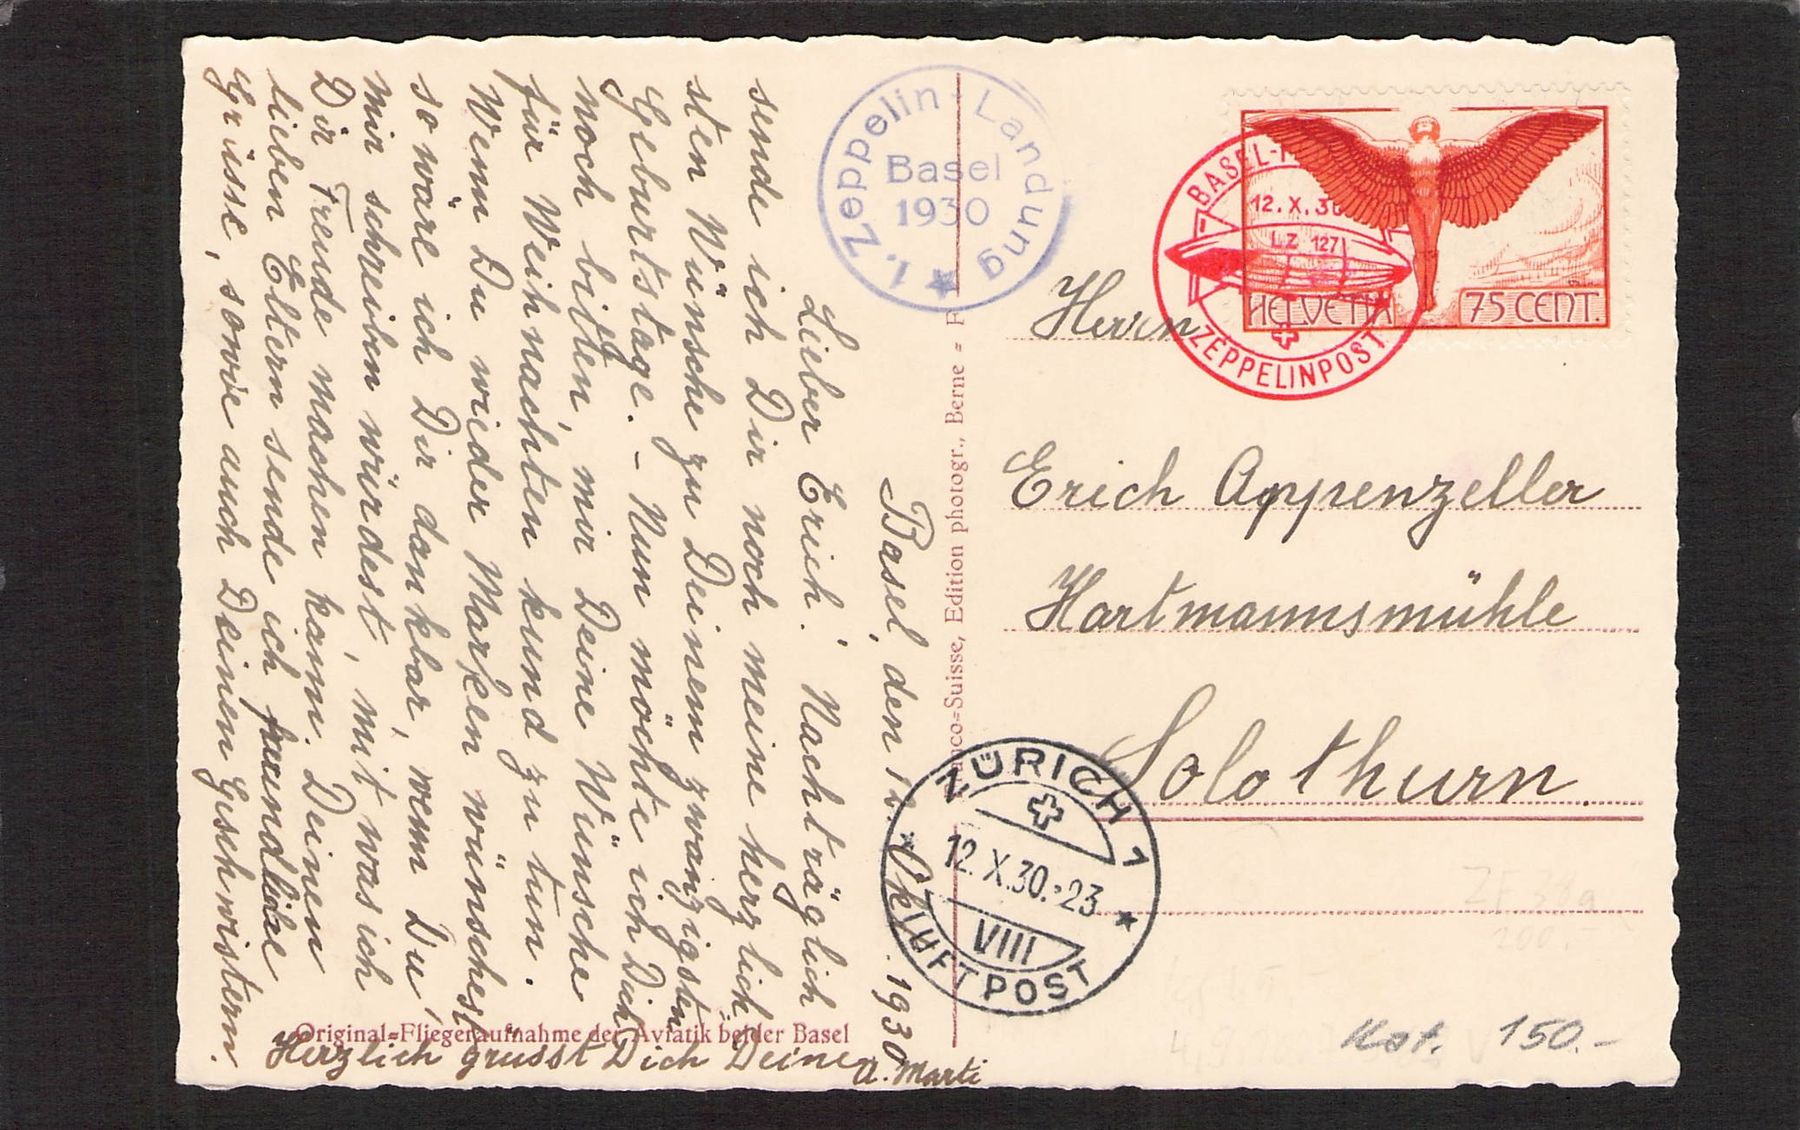 Basel, den 12. Okt. 1930
Lieber Erich! Nachträglich
sende ich Dir noch meine herzlich
sten Wünsche zu Deinem zwanzigsten
Geburtstage. – Nun möchte ich Dich
noch bitten, mir Deine Wünsche
für Weihnachten kund zu tun.
Wenn Du wieder Marken wünschest
so wäre ich Dir dankbar, wenn Du
mir schreiben würdest, mit was ich
Dir Freude machen kann. Deinen
lieben Eltern sende ich freundliche
Grüsse, sowie auch Deinen Geschwistern.
Herzlich grüsst Dich Deine
A. Marti
Original=Fliegeraufnahme der Aviatik beider Basel
nco=Suisse, Edition photogr., Berne = F
1. Zeppelin - Landung
Basel
1930
BASEL-
12. X. 30
LZ 127
ZEPPELINPOST
HELVETIA
75 CENT.
Herrn
Erich Appenzeller
Hartmannsmühle
Solothurn.
ZÜRICH 1
12. X. 30. - 23
VIII
LUFTPOST
ZF 38a
200.-
Kat. 150.-